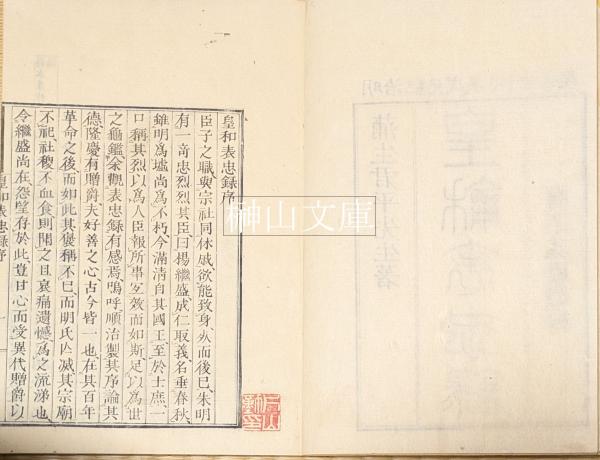 皇和表忠錄序
臣子之職與宗社同休戚欲能致身以而後已朱明
有一奇忠烈烈其臣曰楊繼盛成仁取義名垂春秋
雖明爲墟尚爲不朽今滿清自其國王至於士庶一
口稱其烈以爲人臣報所事玄效而如斯足以爲世
之龜鑑余觀表忠錄有感焉嗚呼順治製其序論其
德隆慶有贈爵夫好善之心古今皆一也在其百年
革命之後而如此其褒稱不已而明氏亾滅其宗廟
不祀社稷不血食則聞之且哀痛遺憾爲之流涕也
令繼盛尚在怨望存於此豈甘心而受異代贈爵以
皇和表忠錄序
榊山文庫
蒲生君平先生著
明治